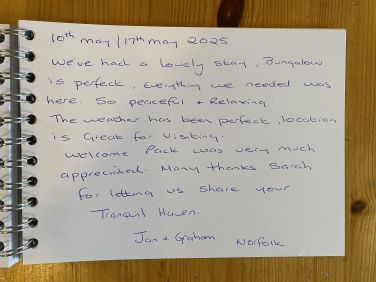 10th may / 17th may 2025
We've had a lovely stay, Bungalow
is perfect, everything we needed was
here. So peaceful + Relaxing.
The weather has been perfect, location
is Great for visiting.
Welcome Pack was very much
appreciated. Many thanks Sarah
for letting us share your
Tranquil Haven.
Jan + Graham Norfolk.